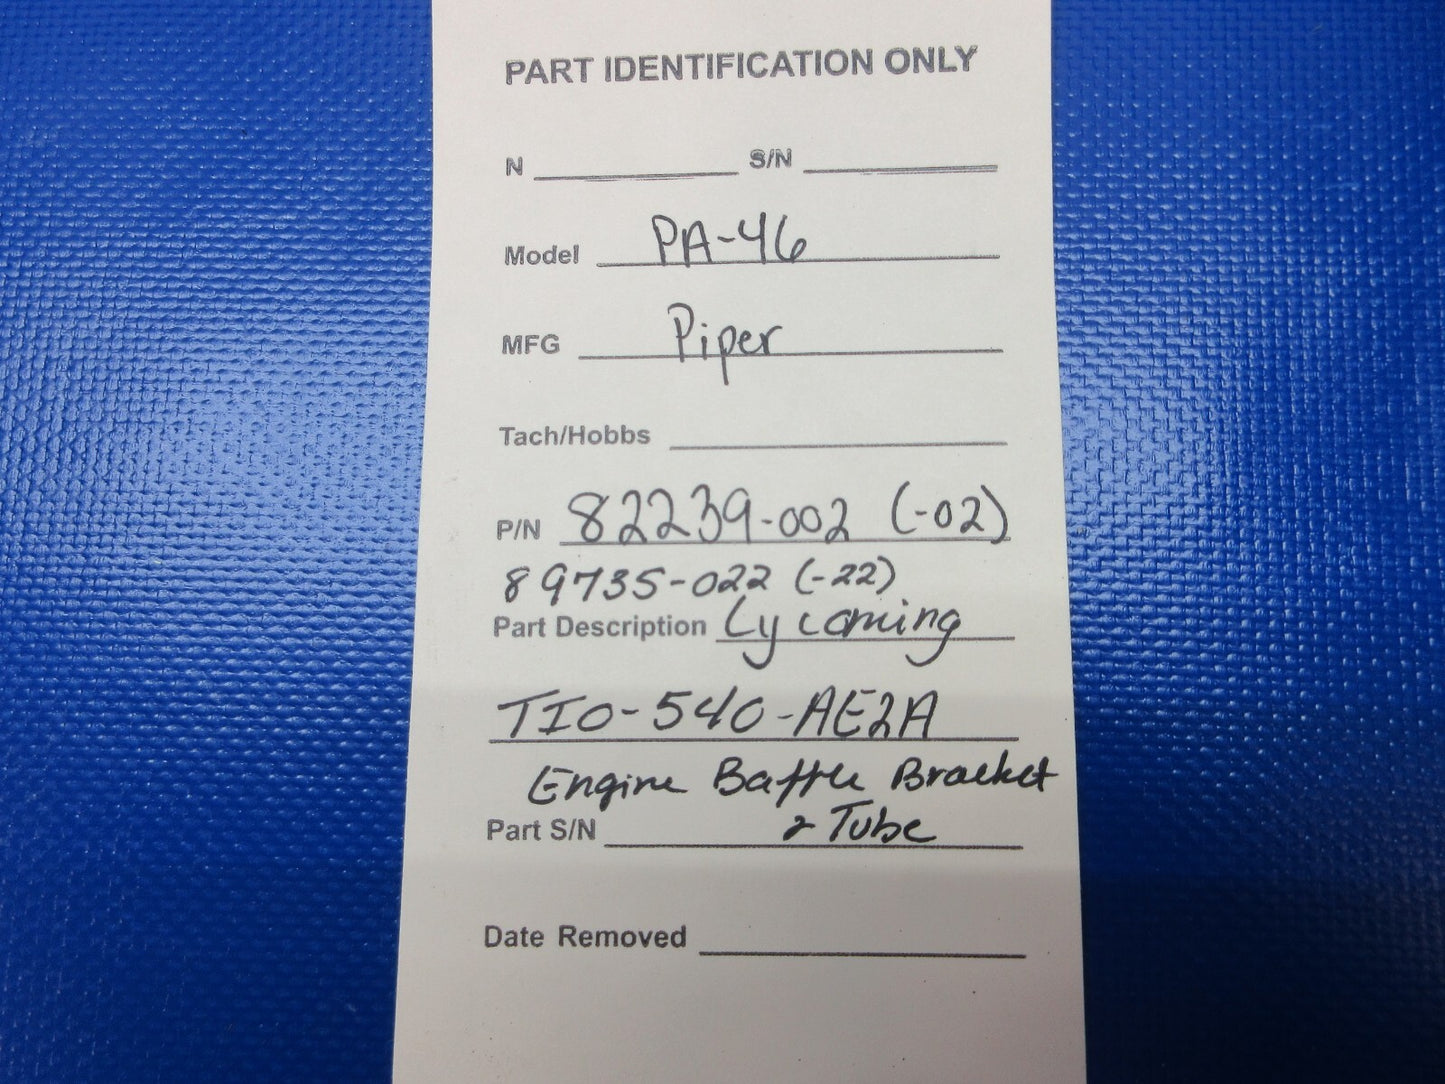 PART IDENTIFICATION ONLY
N S/N
Model PA-46
MFG Piper
Tach/Hobbs
P/N 82239-002 (-02)
89735-022 (-22)
Part Description Lycoming
TIO-540-AE2A
Engine Baffle Bracket
Part S/N & Tube
Date Removed